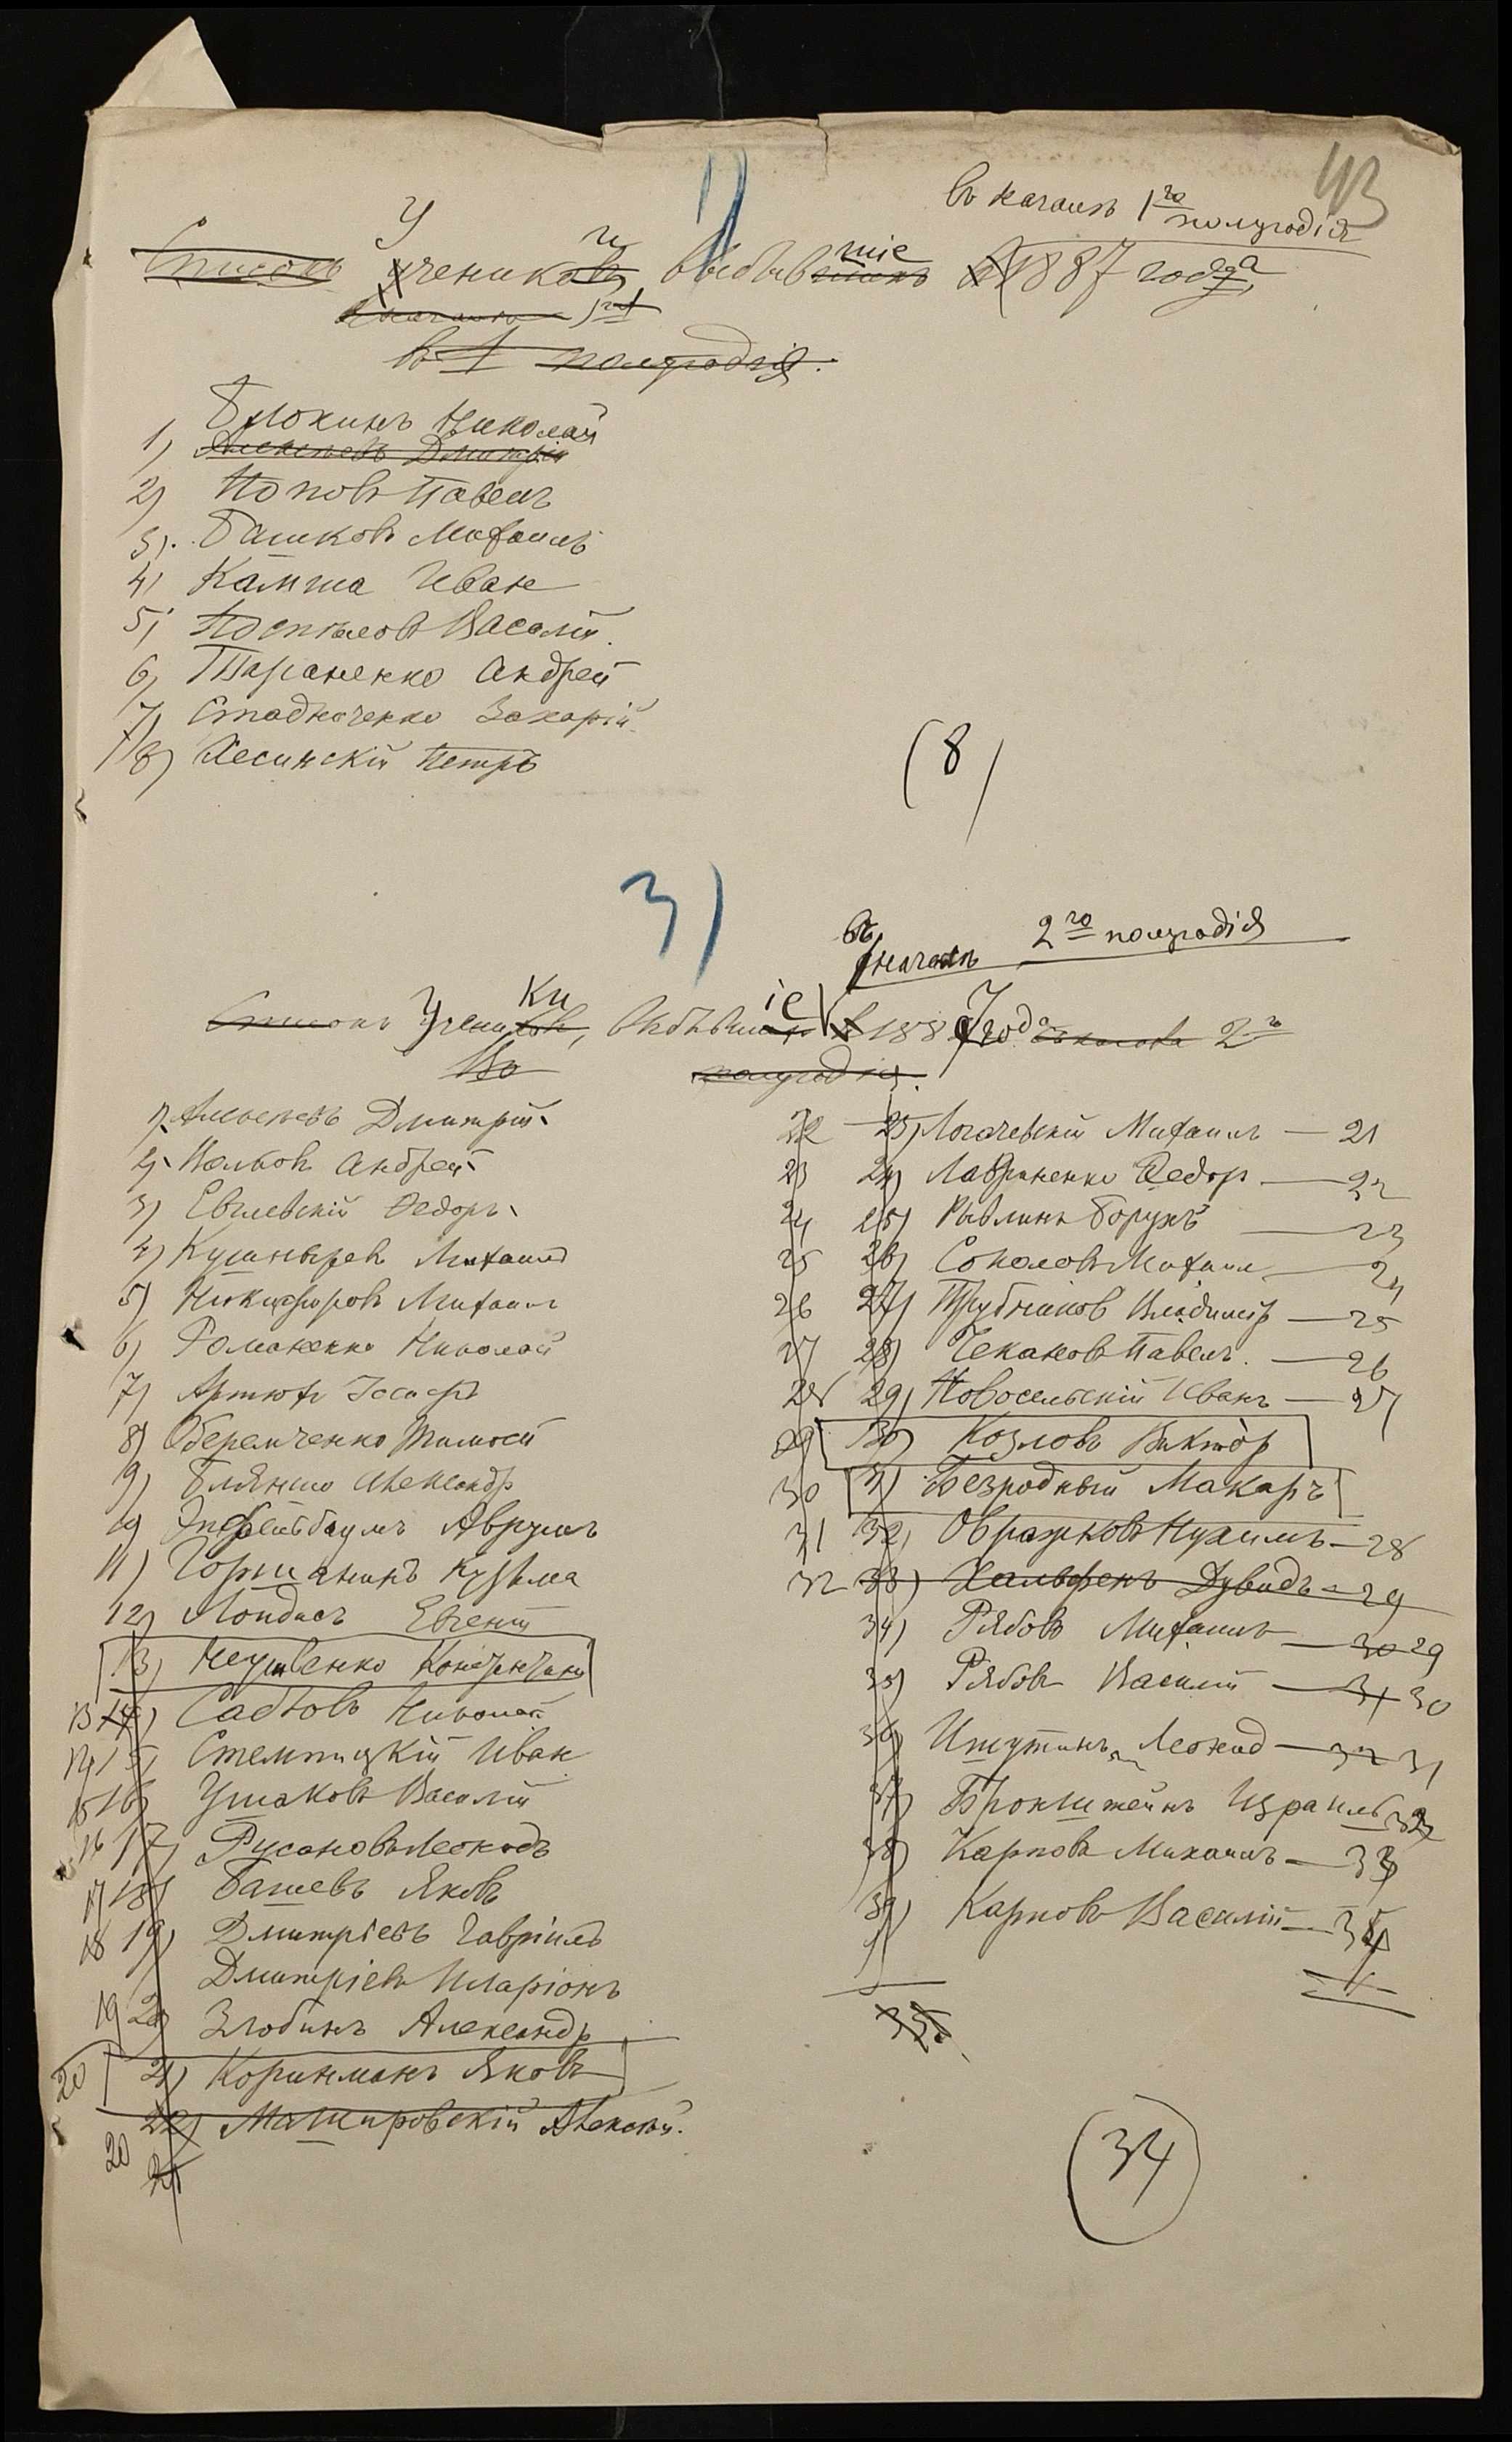 43
1)
въ началѣ 1го
полугодія
Списокъ Ученики выбывшіе 1887 года
въ 1 полугодія.
Блохинъ Николай
1) Алексѣевъ Дмитрій
2) Поповъ Павелъ
3) Башковъ Михаилъ
4) Камша Иван
5) Поспѣловъ Василій
6) Тараненко Андрей
7) Стадниченко Захарій
8) Лесинскій Петръ
(8)
3)
въ началѣ 2го полугодія
Списокъ Ученики, выбывшіе 1887 года 2го
полугодія.
1) Алексѣевъ Дмитрій
2) Волковъ Андрей
3) Евлевскій Федоръ
4) Кушныревъ Михаил
5) Никифоровъ Михаил
6) Романенко Николай
7) Артюхъ
8) Оберемченко Тимофей
9) Александр
10) Аврумъ
11) Горшанинъ Кузьма
12) Евгеній
13)
13 14) Николай
14 15) Стемпицкій Иван
15 16) Ушаковъ Василій
16 17) Русановъ Леонидъ
17 18) Башевъ Яковъ
18 19) Дмитріевъ Гавріилъ
Дмитріевъ Иларіонъ
19 20) Злобинъ Александр
20 21) Коринманъ Яковъ
22) Машировскій Алексѣй.
20 21
22 23) Логачевскій Михаилъ — 21
23 24) Лавриненко Федор — 22
24 25) Рывлинъ Борухъ — 23
25 26) Соколовъ Михаил — 24
26 27) Трубников Владимір — 25
27 28) Чекановъ Павелъ. — 26
28 29) Новосельскій Иванъ — 27
29 30) Козловъ Виктор
30 31) Безродный Макаръ
31 32) Овражковъ Нухимъ — 28
32 33) Хальфенъ Дувидъ — 29
34) Рябовъ Михаилъ — 30 29
35) Рябовъ Василій — 31 30
36) Ишутинъ Леонид — 32 31
37) Бронштейнъ Израиль 32
38) Карповъ Михаилъ — 33
39) Карповъ Василій — 34
35
(34)